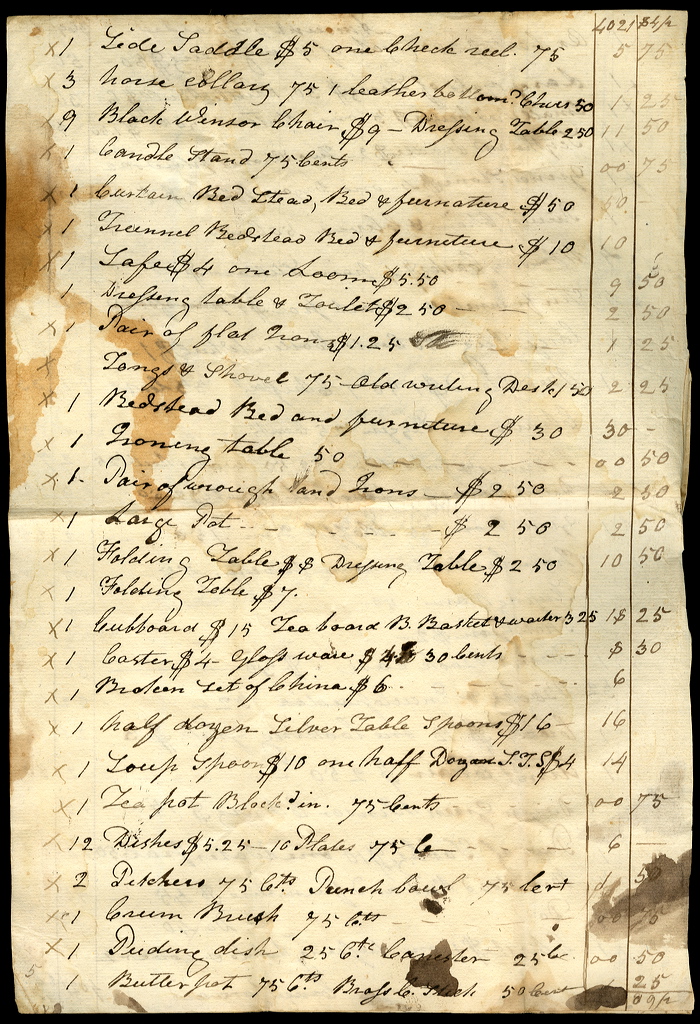 4021 84½
x 1 Side Saddle $5 one Check reel. 75 5 75
x 3 horse collars 75 1 leather bottom.d Chair 50 1 25
x 9 Black Winsor Chair $9 – Dressing Table 250 11 50
x 1 Candle Stand 75 Cents 00 75
x 1 Curtain Bed Stead, Bed & furnature $50 50
x 1 Trunnel Bedstead Bed & furniture $10 10
x 1 Safe $4 one Loom $5.50 9 50
1 Dressing table & Toilet $2 50 2 50
x 1 Pair of flat Irons $1.25 1 25
x Tongs & Shovel 75 – Old writing Desk 1 50 2 25
x 1 Bedstead Bed and furniture $ 30 30 –
x 1 Ironing table 50 00 50
x 1. Pair of wrough hand Irons – $2 50 2 50
x 1 Large Pot – – $ 2 50 2 50
x 1 Folding Table $8 Dressing Table $2 50 10 50
x 1 Folding Table $7.
x 1 Cubboard $15 Tea board B. Basket & waiter 3 25 18 25
x 1 Caster $4 – Glass ware $4 30 Cents 8 30
x 1 Broken set of China $6 6
x 1 half dozen Silver Table Spoons $16 – 16
x 1 Soup Spoon $10 one half Dozan S.T.S $4 14
x 1 Tea pot Block.d in. 75 Cents 00 75
x 12 Dishes $5.25 – 10 Plates 75 C 6 –
x 2 Pitchers 75 Cts Punch bowl 75 Cent 1 50
x 1 Crum Brush 75 Cts 00 75
x 1 Puding dish 25 Cts Canester 25 C. 00 50
1 Butter pot 75 Cts Brass C. Stick 50 Cent 1 25
5
09½